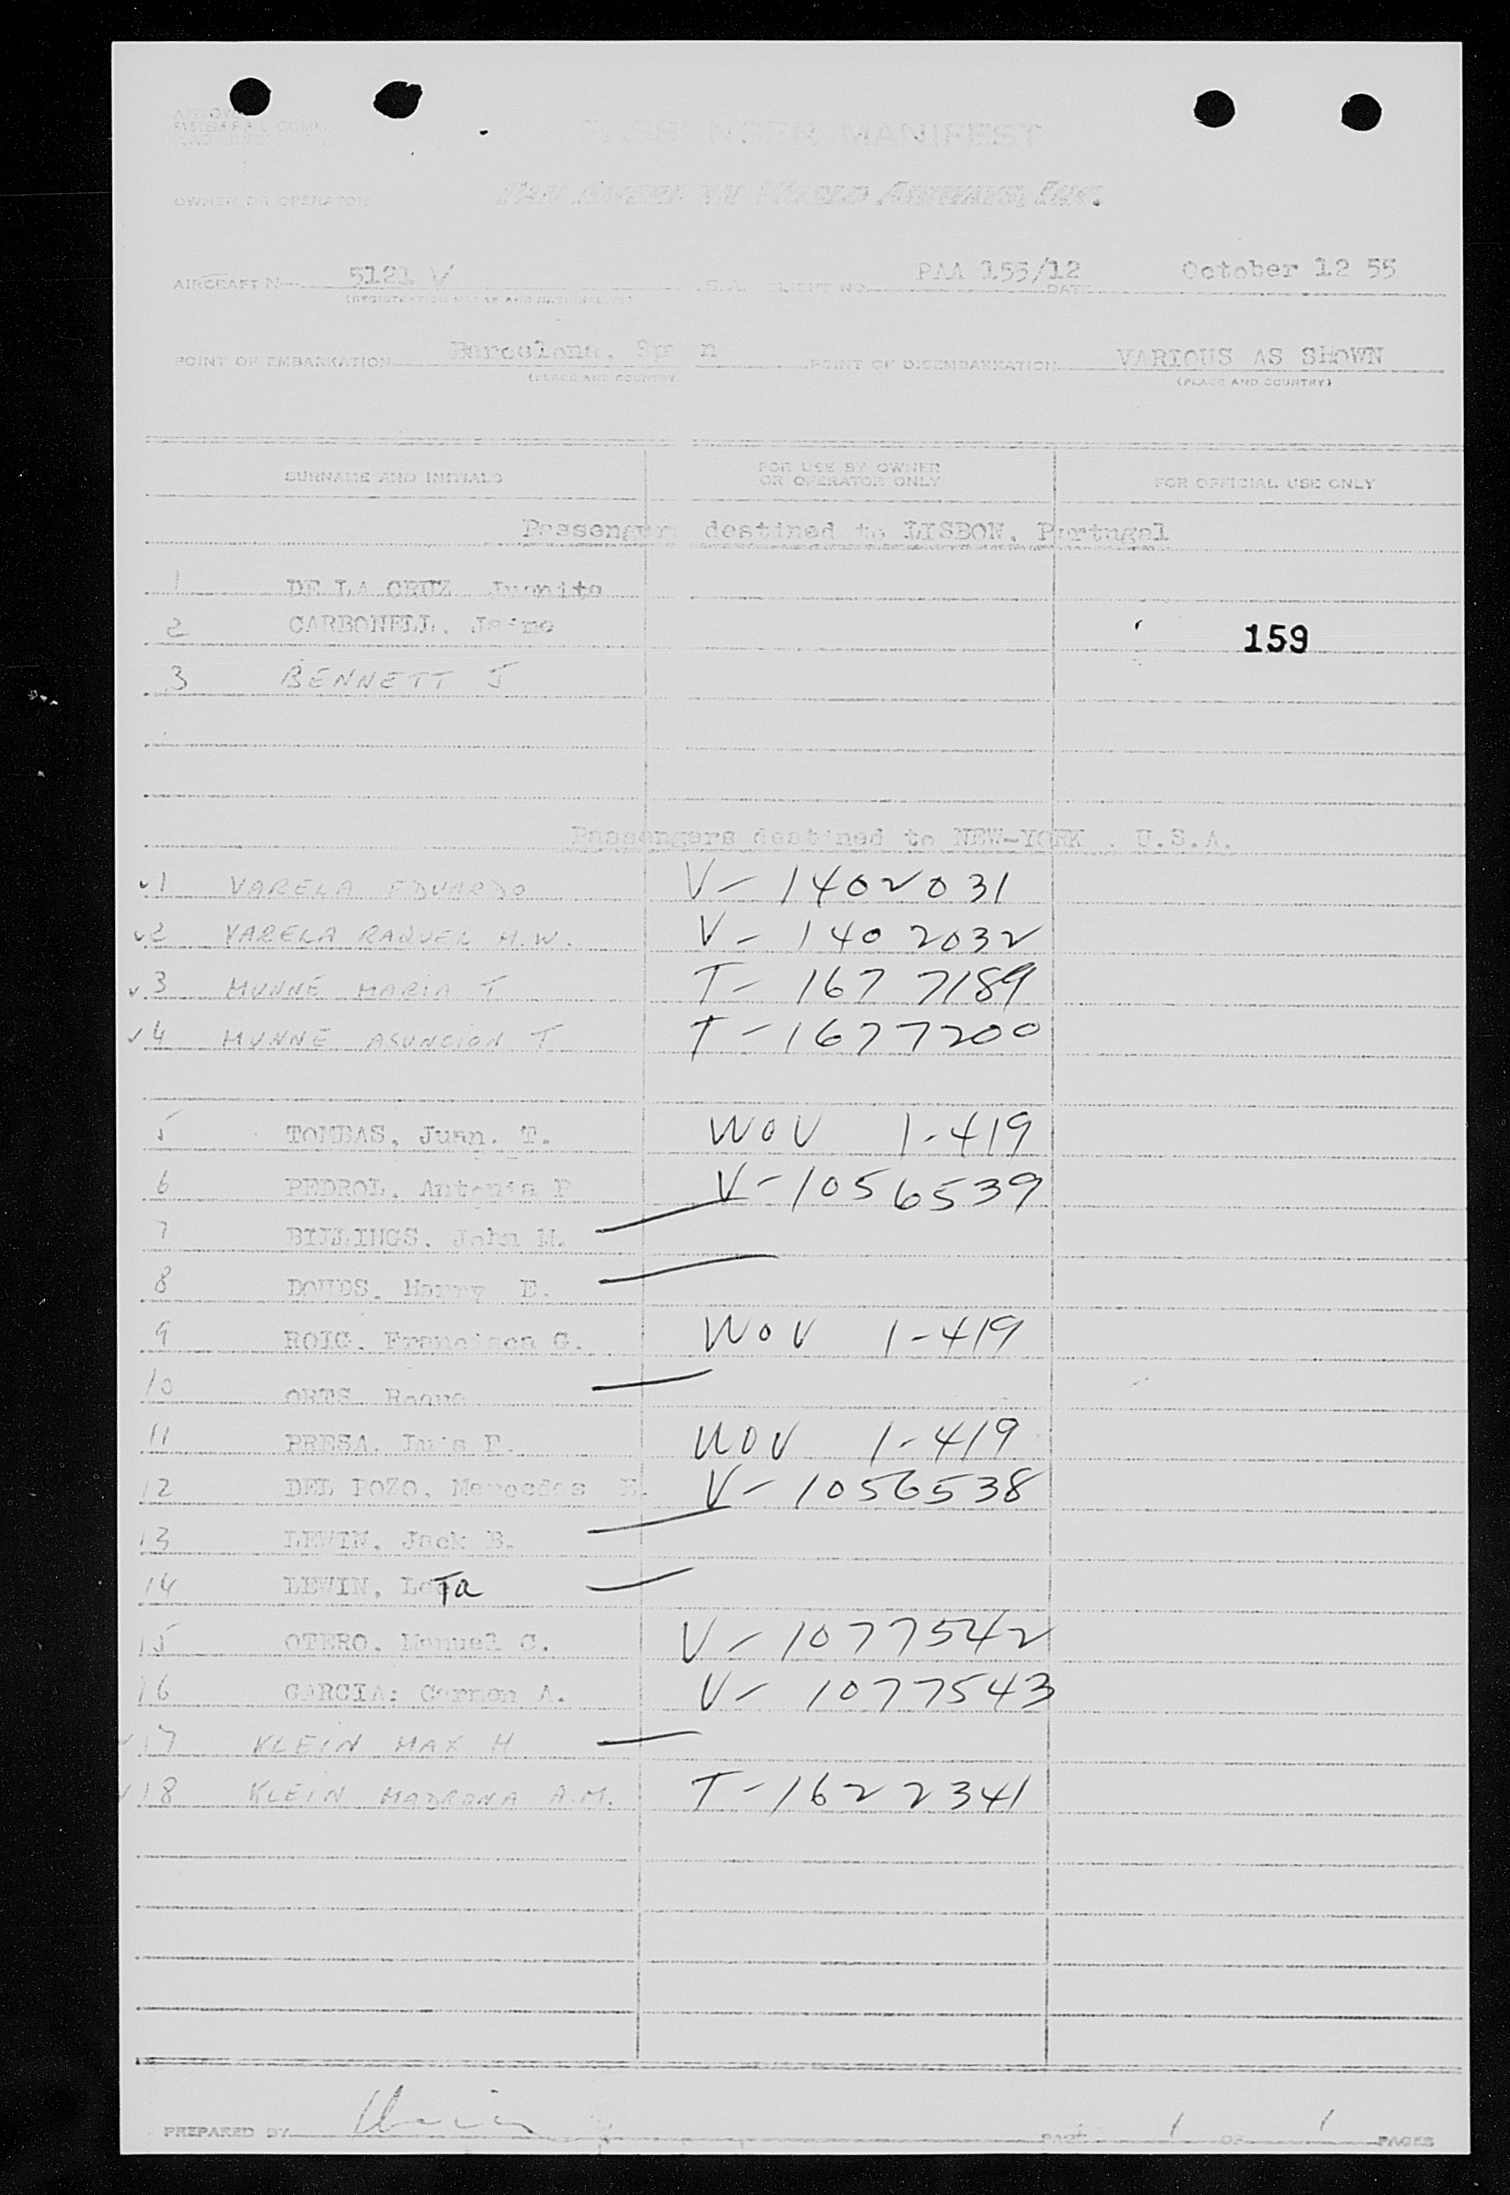 PASSENGER MANIFEST
OWNER OR OPERATOR PAN AMERICAN WORLD AIRWAYS, INC.
AIRCRAFT N 5121 V U.S.A. FLIGHT NO. PAA 155/12 DATE October 12 55
(REGISTRATION MARKS AND NATIONALITY)
POINT OF EMBARKATION Barcelona, Spain POINT OF DISEMBARKATION VARIOUS AS SHOWN
(PLACE AND COUNTRY) (PLACE AND COUNTRY)
SURNAME AND INITIALS FOR USE BY OWNER OR OPERATOR ONLY FOR OFFICIAL USE ONLY
Passengers destined to LISBON, Portugal
1 DE LA CRUZ Juanita
2 CARBONELL, Jaime 159
3 BENNETT J
Passengers destined to NEW-YORK . U.S.A.
√1 VARELA EDUARDO V- 1402031
√2 VARELA RAQUEL H.W. V- 1402032
√3 MUNNÉ MARIA T T- 1677189
√4 MUNNÉ ASUNCION T T- 1677200
5 TOMBAS, Juan. T. WOV 1-419
6 PEDROL, Antonia P V- 1056539
7 BILLINGS, John M. —
8 Harry E. —
9 ROIG, Francisca G. WOV 1-419
10 ORTS Roque —
11 PRESA, Luis F. WOV 1-419
12 DEL POZO, Mercedes V- 1056538
13 LEWIN, Jack B. —
14 LEWIN, LoTa —
15 OTERO, Manuel C. V- 1077542
16 GARCIA: Carmen A. V- 1077543
√17 KLEIN MAX H —
√18 KLEIN MADRONA A.M. T- 1622341
PREPARED BY PAGE 1 OF 1 PAGES